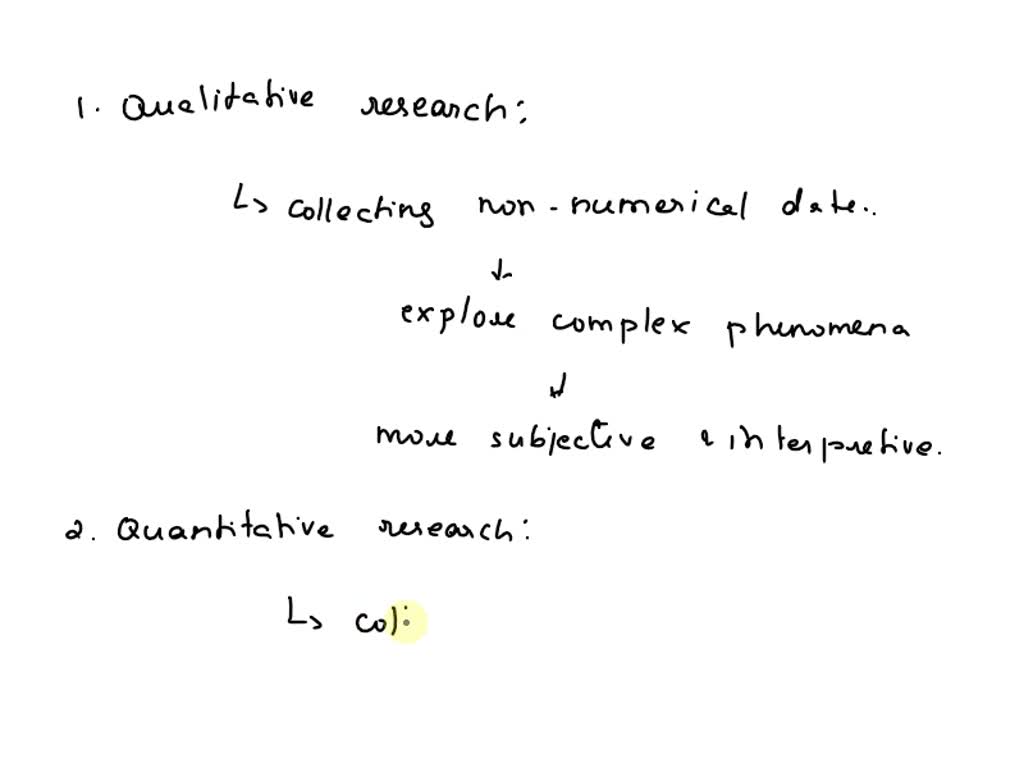 1. Qualitative research:
↳ collecting non-numerical date..
↓
explore complex phenomena
↓
more subjective & interpretive.
2. Quantitative research:
↳ col